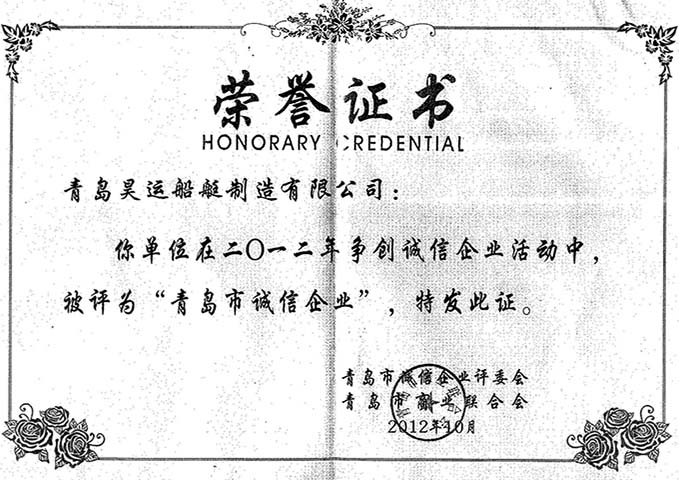 荣誉证书
HONORARY CREDENTIAL
青岛昊运船艇制造有限公司：
你单位在二〇一二年争创诚信企业活动中，
被评为“青岛市诚信企业”，特发此证。
青岛市诚信企业评委会
青岛市 业联合会
2012年10月